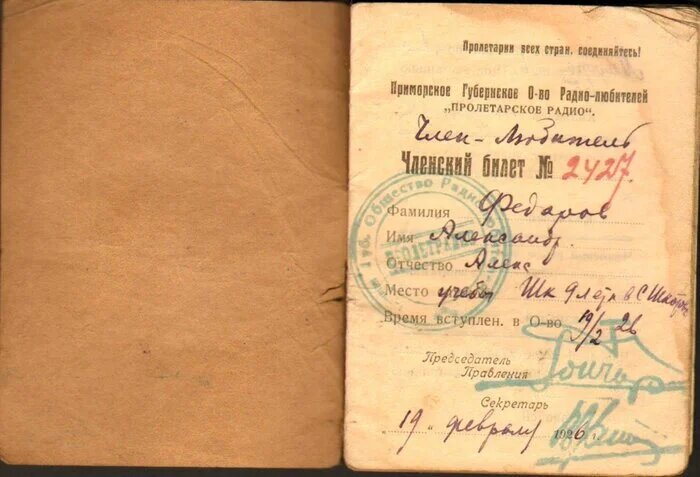 Пролетарии всех стран, соединяйтесь!
Приморское Губернское О-во Радио-любителей
„ПРОЛЕТАРСКОЕ РАДИО“.
Член-Любитель
Членский билет № 2427
Фамилия Федоров
Имя Александр.
Отчество Алекс
Место учебы Шк
Время вступлен. в О-во 19/2 26
Председатель
Правления
Гончар
Секретарь
„19„ февраля 1926 г.